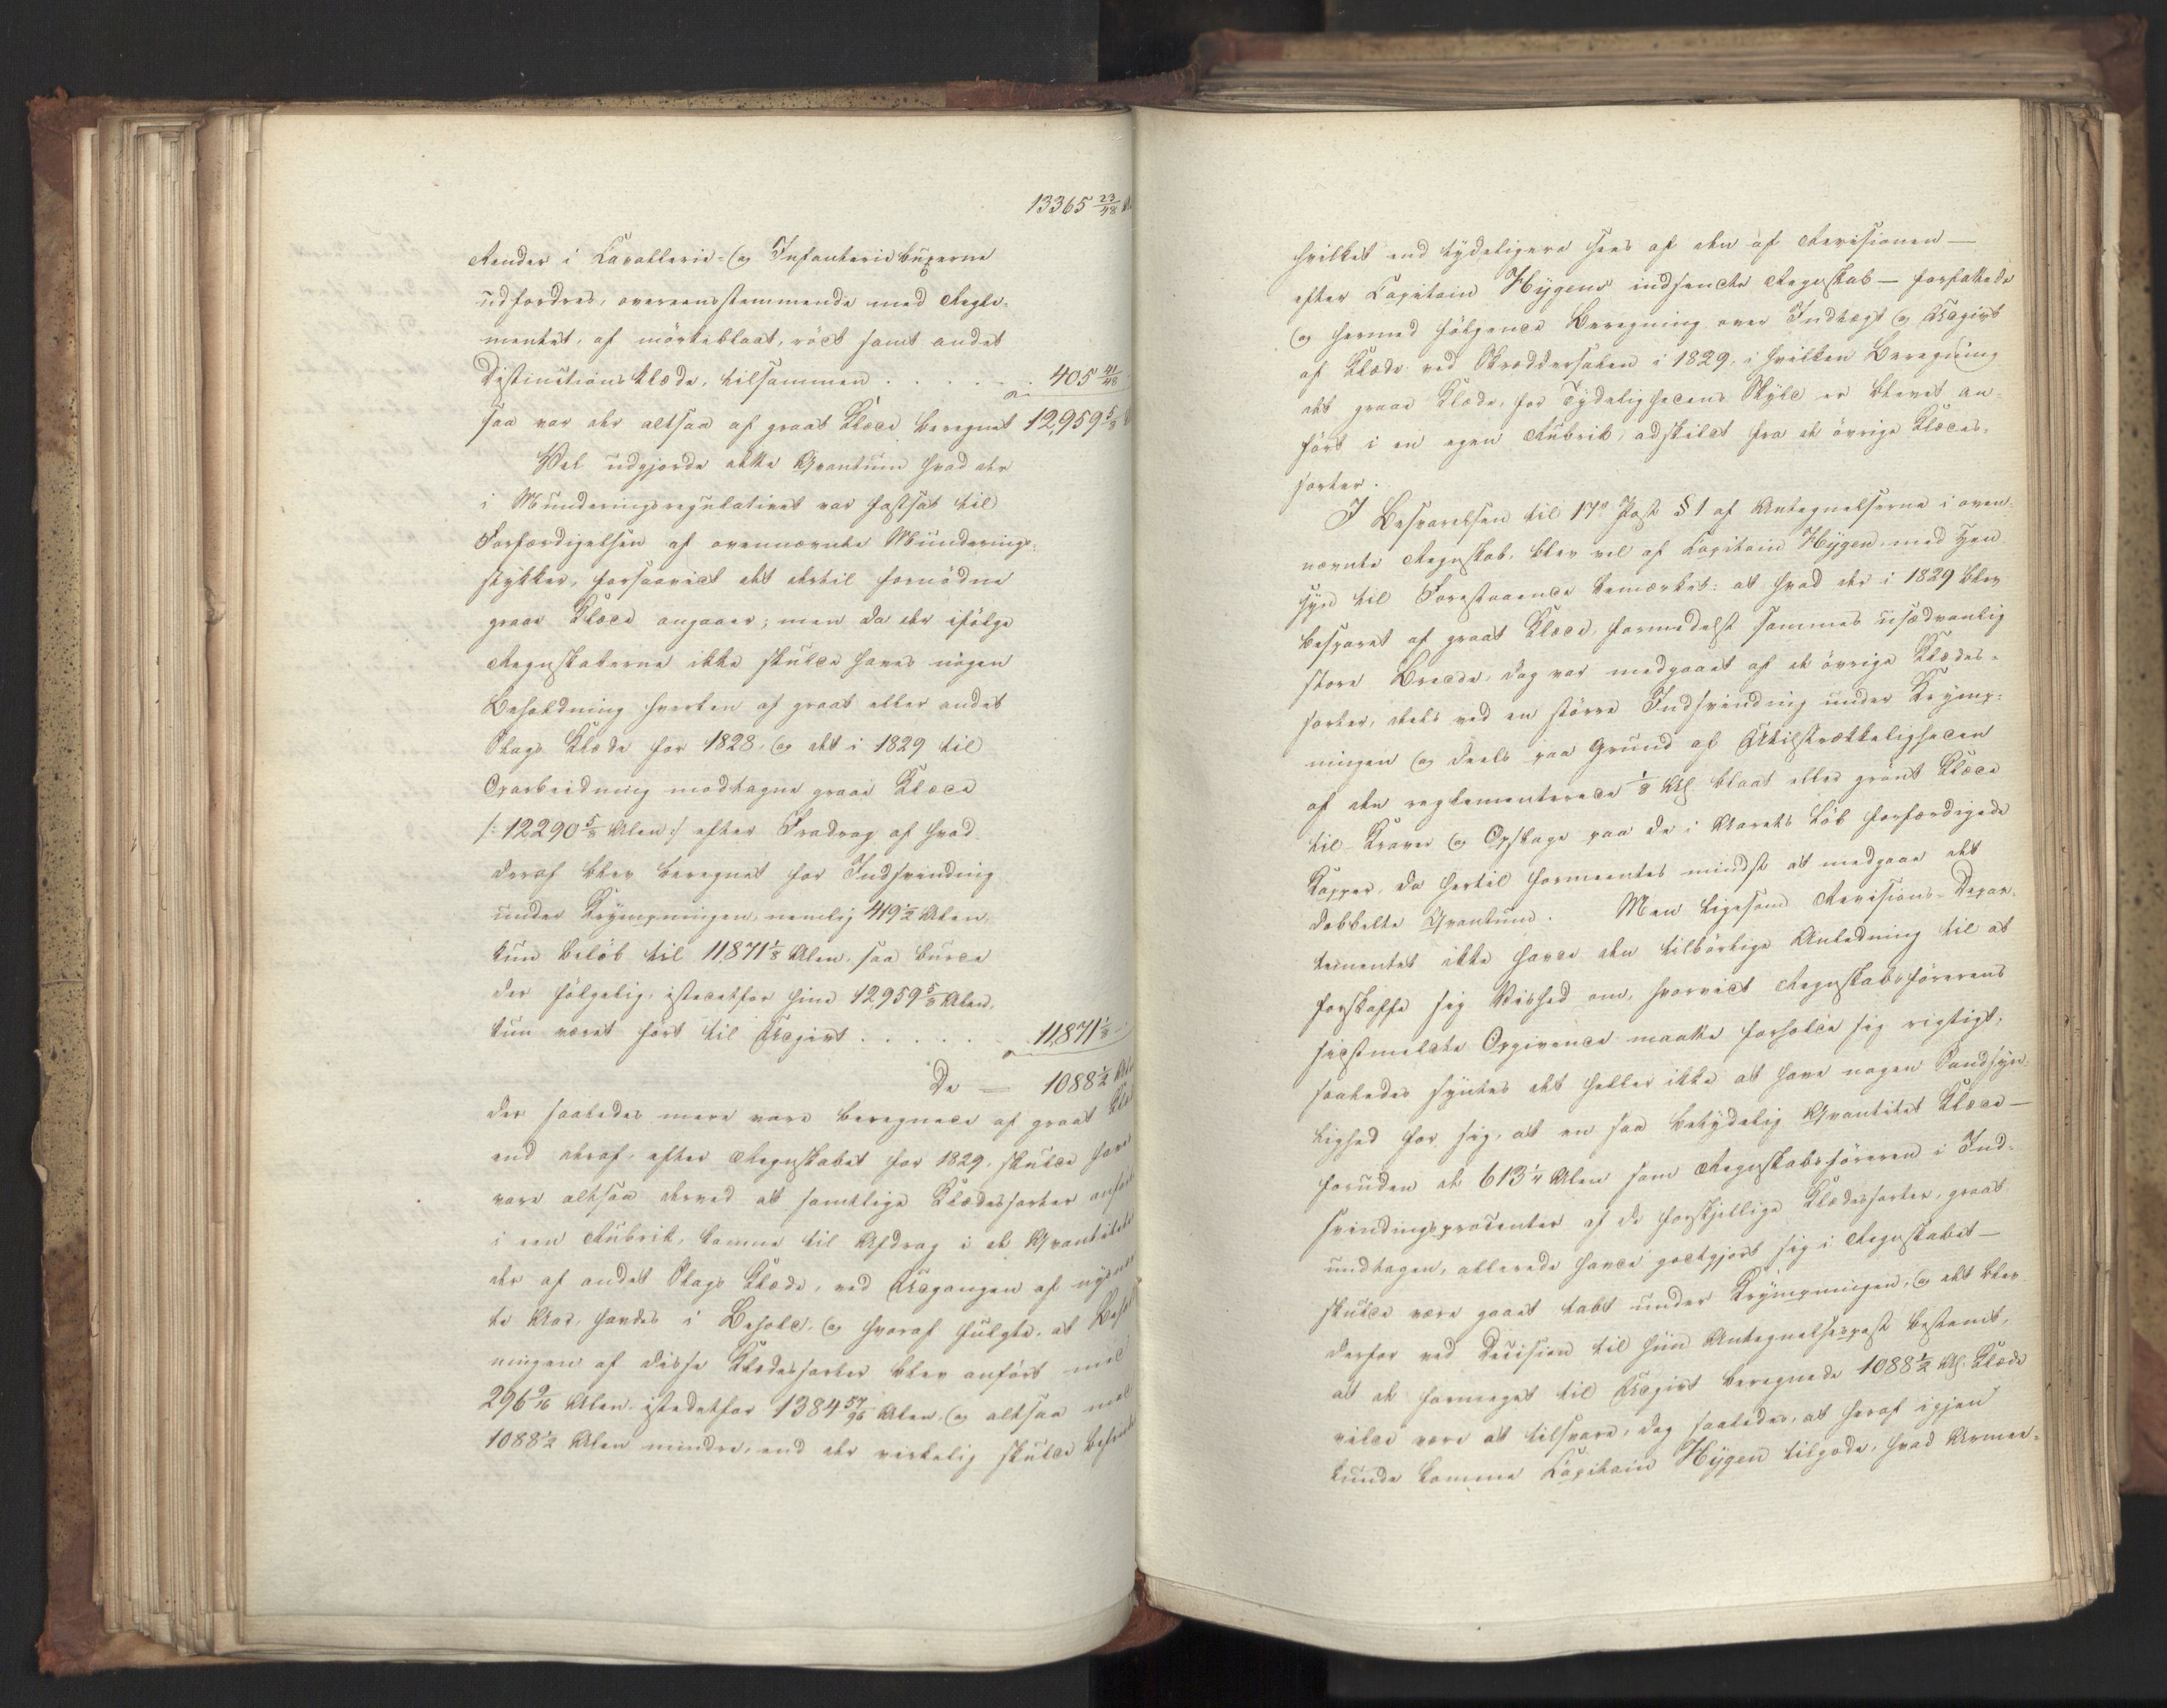 13365 23/48 A
Render i Cavallerie- og Infanteriebuxerne
udfordres, overeensstemmende med Regle-
mentet, af mörkeblaat, rödt samt andet
Distinctionsklæde, tilsammen . . . . . . 405 41/48
saa var der altsaa af graat Klæde beregnet 12,959 5/8
Vel udgjorde dette Qvantum hvad der
i Munderingsregulativet var fastsat til
Forfærdigelsen af ovennævnte Munderings-
stykker, forsaavidt det dertil fornödne
graae Klæde angaaer; men da der ifölge
Regnskaberne ikke skulde haves nogen
Beholdning hverken af graat eller andet
Slags Klæde for 1828, og det i 1829 til
Oparbeidning modtagne graae Klæde
/: 12290 5/8 Alen :/ efter Fradrag af hvad
deraf blev beregnet for Indsvinding
under Krympningen, nemlig 419 1/2 Alen,
kun belöb til 11,871 1/8 Alen, saa burde
der fölgelig, istedetfor hine 12,959 5/8 Alen,
kun været fört til Udgivt . . . . . . 11,871 1/8
De — 1088 1/2 Alen
der saaledes mere vare beregnede af graat Klæ
end deraf, efter Regnskabet for 1829, skulde have
vare altsaa derved at samtlige Klædessorter anfört
i een Rubrik, komne til Afdrag i de Qvantiteter
der af andet Slags Klæde, ved Udgangen af nysnævn
te Aar, havdes i Behold, og hvoraf fulgte, at Behold
ningen af disse Klædessorter blev anfört med
296 9/16 Alen istedetfor 1384 57/96 Alen, og altsaa med
1088 1/2 Alen mindre, end der virkelig skulde befinde
hvilket end tydeligere sees af den af Revisionen —
efter Capitain Hÿgens indsendte Regnskab — forfattede
og hermed fölgende Beregning over Indtægt og Udgivt
af Klæde ved Skræddersalen i 1829, i hvilken Beregning
det graae Klæde, for Tydelighedens Skyld er blevet an-
fört i en egen Rubrik, adskilt fra de övrige Klædes-
sorter.
I Besvarelsen til 17de Post § 1 af Antegnelserne i oven-
nævnte Regnskab, blev vel af Capitain Hÿgen, med Hen-
syn til Forestaaende bemærket: at hvad der i 1829 blev
besparet af graat Klæde, formedelst sammes usædvanlig
store Bredde, dog var medgaaet af de övrige Klædes-
sorter, deels ved en större Indsvinding under Krymp-
ningen og deels paa Grund af Utilstrækkeligheden
af den reglementerede 1/8 Al. blaat eller grönt Klæde
til Kraver og Opslage paa de i Aarets Löb forfærdigede
Kapper, da hertil formeentes mindst at medgaae det
dobbelte Qvantum. Men ligesom Revisions-Depar-
tementet ikke havde den tilbörlige Anledning til at
forskaffe sig Vished om, hvorvidt Regnskabsförerens
sidstmeldte Opgivende maatte forholde sig rigtigt,
saaledes syntes det heller ikke at have nogen Sandsyn-
lighed for sig, at en saa betydelig Qvantitet Klæde —
foruden de 613 1/4 Alen som Regnskabsföreren i Ind-
svindingsprocenter af de forskjellige Klædessorter, graat
undtagen, allerede havde godtgjort sig i Regnskabet —
skulde være gaaet tabt under Krympningen, og det blev
derfor ved Decision til hiin Antegnelsespost bestemt,
at de formeget til Udgivt beregnede 1088 1/2 Al. Klæde
vilde være at tilsvare, dog saaledes, at heraf igjen
kunde komme Capitain Hÿgen tilgode, hvad Armee-